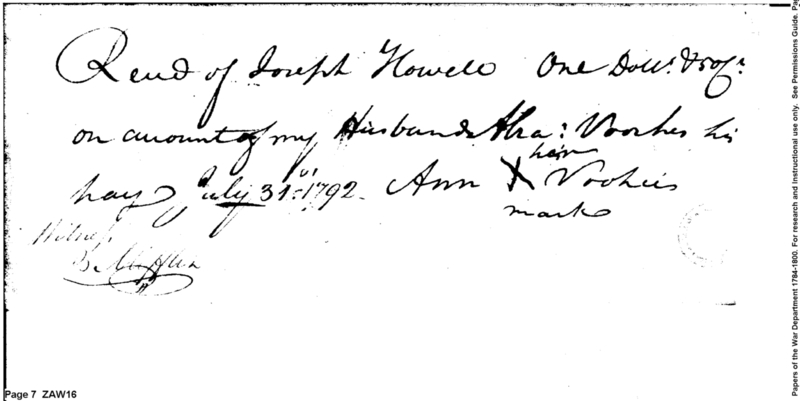 Recvd of Joseph Howell One Dollr.
on account of my Husbands Abra: Voorhes his
pay July 31st: 1792. Ann her X mark Voohies
Witness
B. Mifflin
Page 7 ZAW16
Papers of the War Department 1784-1800. For research and instructional use only. See Permissions Guide.